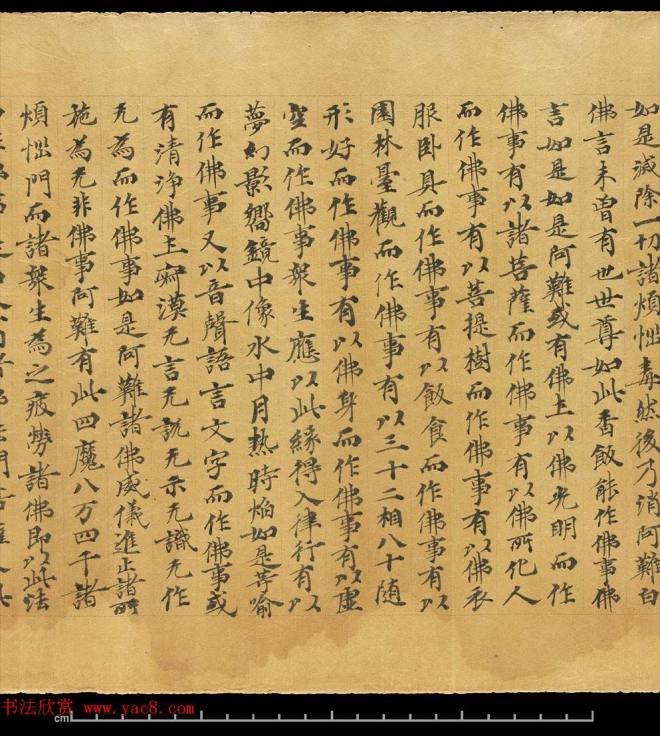 如是滅除一切諸煩惱毒然後乃消阿難白
佛言未曾有也世尊如此香飯能作佛事佛
言如是如是阿難或有佛土以佛光明而作
佛事有以諸菩薩而作佛事有以佛所化人
而作佛事有以菩提樹而作佛事有以佛衣
服卧具而作佛事有以飯食而作佛事有以
園林臺觀而作佛事有以三十二相八十随
形好而作佛事有以佛身而作佛事有以虛
空而作佛事衆生應以此緣得入律行有以
夢幻影嚮鏡中像水中月熱時焰如是等喻
而作佛事又以音聲語言文字而作佛事或
有清淨佛土寂漠无言无說无示无識无作
无為而作佛事如是阿難諸佛威儀進止諸所
施為无非佛事阿難有此四魔八万四千諸
煩惱門而諸衆生為之疲勞諸佛即以此法
书法欣赏 www.yac8.com
cm